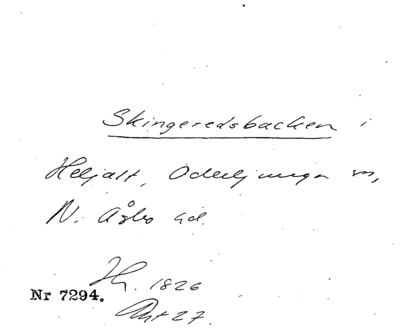 Skingeredsbacken i
Heljalt, Oderljunga sn,
N. Åsbo hd.
Hr. 1826
Nr 7294.
Akt 27.